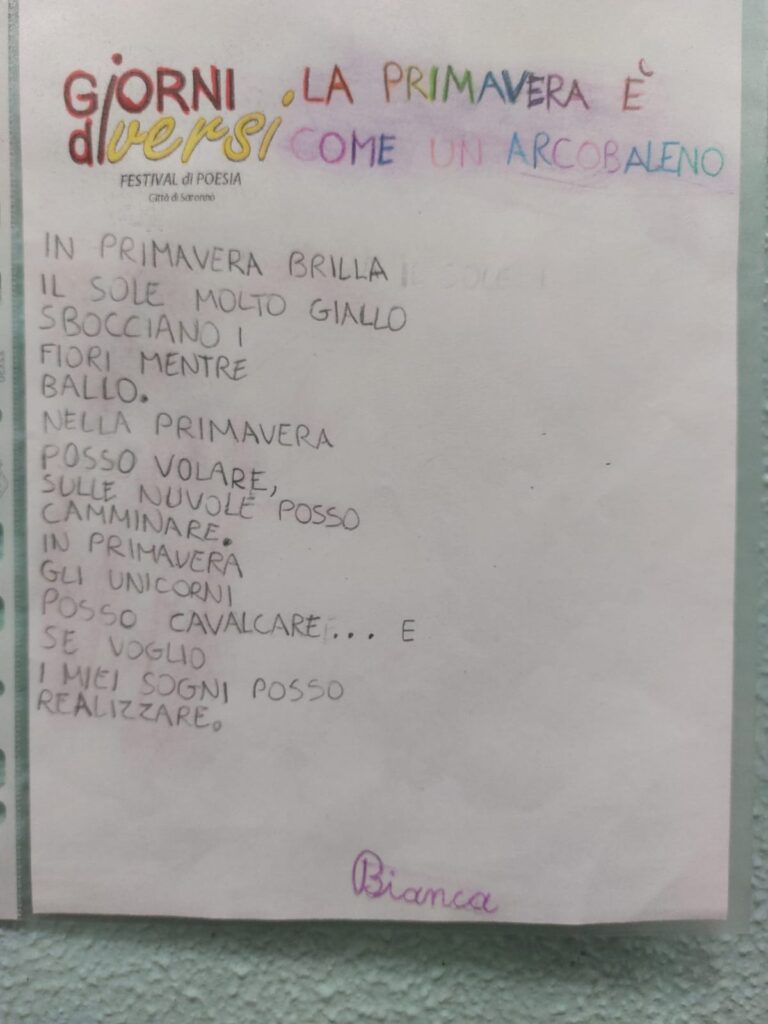 GiORNI
diversi
FESTIVAL di POESIA
Città di Saronno
LA PRIMAVERA È
COME UN ARCOBALENO
IN PRIMAVERA BRILLA
IL SOLE MOLTO GIALLO
SBOCCIANO I
FIORI MENTRE
BALLO.
NELLA PRIMAVERA
POSSO VOLARE,
SULLE NUVOLE POSSO
CAMMINARE.
IN PRIMAVERA
GLI UNICORNI
POSSO CAVALCARE... E
SE VOGLIO
I MIEI SOGNI POSSO
REALIZZARE.
Bianca